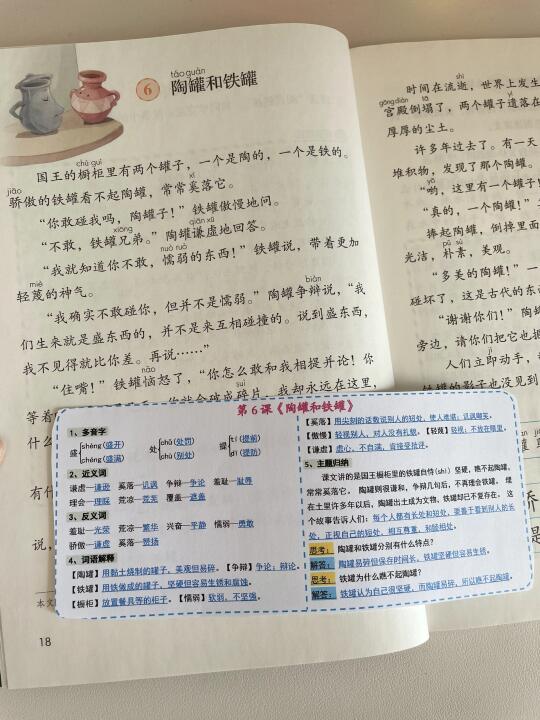 táo guàn
6 陶罐和铁罐
chú guì
国王的橱柜里有两个罐子，一个是陶的，一个是铁的。
jiāo xī
骄傲的铁罐看不起陶罐，常常奚落它。
“你敢碰我吗，陶罐子！”铁罐傲慢地问。
xiōng qiān xū
“不敢，铁罐兄弟。”陶罐谦虚地回答。
nuò ruò
“我就知道你不敢，懦弱的东西！”铁罐说，带着更加
miè
轻蔑的神气。
biàn
“我确实不敢碰你，但并不是懦弱。”陶罐争辩说，“我
们生来就是盛东西的，并不是来互相碰撞的。说到盛东西，
我不见得就比你差。再说……”
nǎo
“住嘴！”铁罐恼怒了，“你怎么敢和我相提并论！你
suì
等着
碎片，我却永远在这里，
什么
有什
说，
本文
18
shì
时间在流逝，世界上发生
gōng diàn tā yí
宫殿倒塌了，两个罐子遗落在
厚厚的尘土。
许多年过去了。有一天
堆积物，发现了那个陶罐。
yō
“哟，这里有一个罐子！
“真的，一个陶罐！”
捧起陶罐，倒掉里面
pǔ sù
光洁，朴素，美观。
“多美的陶罐！”一
碰坏了，这是古代的东
“谢谢你们！”陶
旁边，请你们把它也掘
jí
人们立即动手，
的影子也没见到
第6课《陶罐和铁罐》
1、多音字
盛 shèng(盛开) chéng(盛满)
处 chǔ(处罚) chù(别处)
提 tí(提前) dī(提防)
2、近义词
谦虚—谦逊 奚落—讥讽 争辩—争论 羞耻—耻辱
理会—理睬 荒凉—荒芜 覆盖—遮盖
3、反义词
羞耻—光荣 荒凉—繁华 兴奋—平静 懦弱—勇敢
骄傲—谦虚 奚落—赞扬
4、词语解释
【陶罐】用黏土烧制的罐子，美观但易碎。【争辩】争论；辩论。
【铁罐】用铁做成的罐子，坚硬但容易生锈和腐蚀。
【橱柜】放置餐具等的柜子。【懦弱】软弱，不坚强。
【奚落】用尖刻的话数说别人的短处，使人难堪；讥讽嘲笑。
【傲慢】轻视别人，对人没有礼貌。【轻蔑】轻视；不放在眼里。
【谦虚】虚心，不自满，肯接受批评。
5、主题归纳
课文讲的是国王橱柜里的铁罐自恃(shì)坚硬，瞧不起陶罐，
常常奚落它，陶罐则很谦和，争辩几句后，不再理会铁罐，埋
在土里许多年以后，陶罐出土成为文物，铁罐却已不复存在。这
个故事告诉人们：每个人都有长处和短处，要善于看到别人的长
处，正视自己的短处，相互尊重，和睦相处。
思考：陶罐和铁罐分别有什么特点？
解答：陶罐易碎但保存时间长，铁罐坚硬但容易生锈。
思考：铁罐为什么瞧不起陶罐？
解答：铁罐认为自己很坚硬，而陶罐易碎，所以瞧不起陶罐。